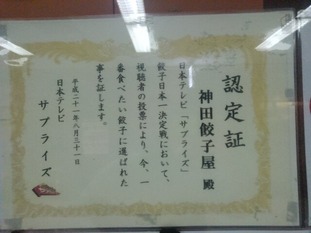 認定証
神田餃子屋 殿
日本テレビ「サプライズ」
餃子日本一決定戦において、
視聴者の投票により、今、一
番食べたい餃子に選ばれた
事を証します。
平成二十一年八月三十一日
日本テレビ
サプライズ